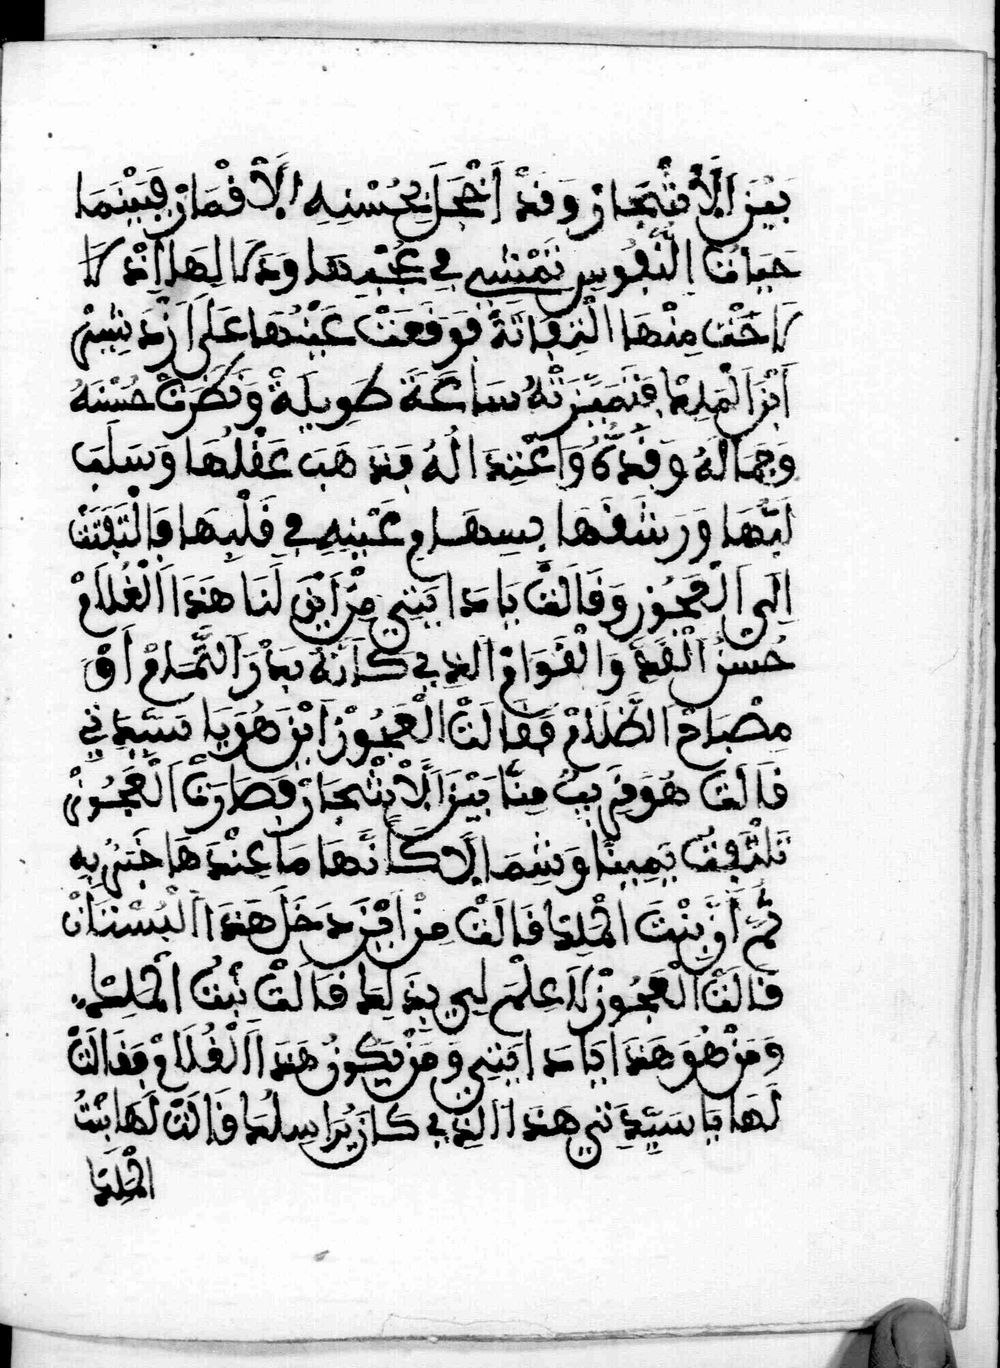 بَيْنَ الْأَشْجَارْ وَقَدْ أَخْجَلَ بِحُسْنِهِ الْأَقْمَارْ فَبَيْنَمَا
حَيَاتُ النُّفُوسِ تَمْشِي فِي عُجْبِهَا وَدَلَالِهَا إِذْ
لَاحَتْ مِنْهَا الْتِفَاتَةً فَوَقَعَتْ عَيْنُهَا عَلَى أَزْدَشِيْر
ابْنَ الْمَلِك فَتَمَيَّزَتْهُ سَاعَةً طَوِيلَةً وَنَظَرَتْ حُسْنَهُ
وَجَمَالَهُ وَقَدَّهُ وَاعْتِدَالَهُ فَذَهَبَ عَقْلُهَا وَسَلَبَ
لُبَّهَا وَرَشَقَهَا بِسِهَامِ عَيْنِهِ فِي قَلْبِهَا فَالْتَفَتَتْ
إِلَى الْعَجُوز وَقَالَتْ يَا دَايَتِي مِنْ أَيْنَ لَنَا هَذَا الْغُلَامْ
حُسْنُ الْقَدِّ وَالْقَوَامْ الذِي كَأَنَّهُ بَدْرَ التَّمَامْ أَوْ
مِصْبَاحْ الظَّلَامْ فَقَالَتْ الْعَجُوزْ أَيْنَ هُوَ يَا سَيِّدَتِي
قَالَتْ هُوَ قَرِيبٌ مِنَّا بَيْنَ الْأَشْجَارْ فَصَارَتْ الْعَجُوزْ
تَلْتَفِتُ يَمِينًا وَشِمَالًا كَأَنَّهَا مَا عِنْدَهَا خَبَرٌ بِهِ
ثُمَّ أَنَّ بِنْتَ الْمَلِك قَالَتْ مِنْ أَيْنَ دَخَلَ هَذَا الْبُسْتَانْ
قَالَتْ الْعَجُوزْ لَا عِلْمَ لِي بِذَلِك قَالَتْ بِنْتُ الْمَلِك
وَمَنْ هُوَ هَذَا يَا دَايَتِي وَمَنْ يَكُونُ هَذَا الْغُلَامْ فَقَالَتْ
لَهَا يَا سَيِّدَتِي هَذَا الذِي كَانَ يُرَاسِلُك قَالَتْ لَهَا بِنْتُ
الْمَلِك